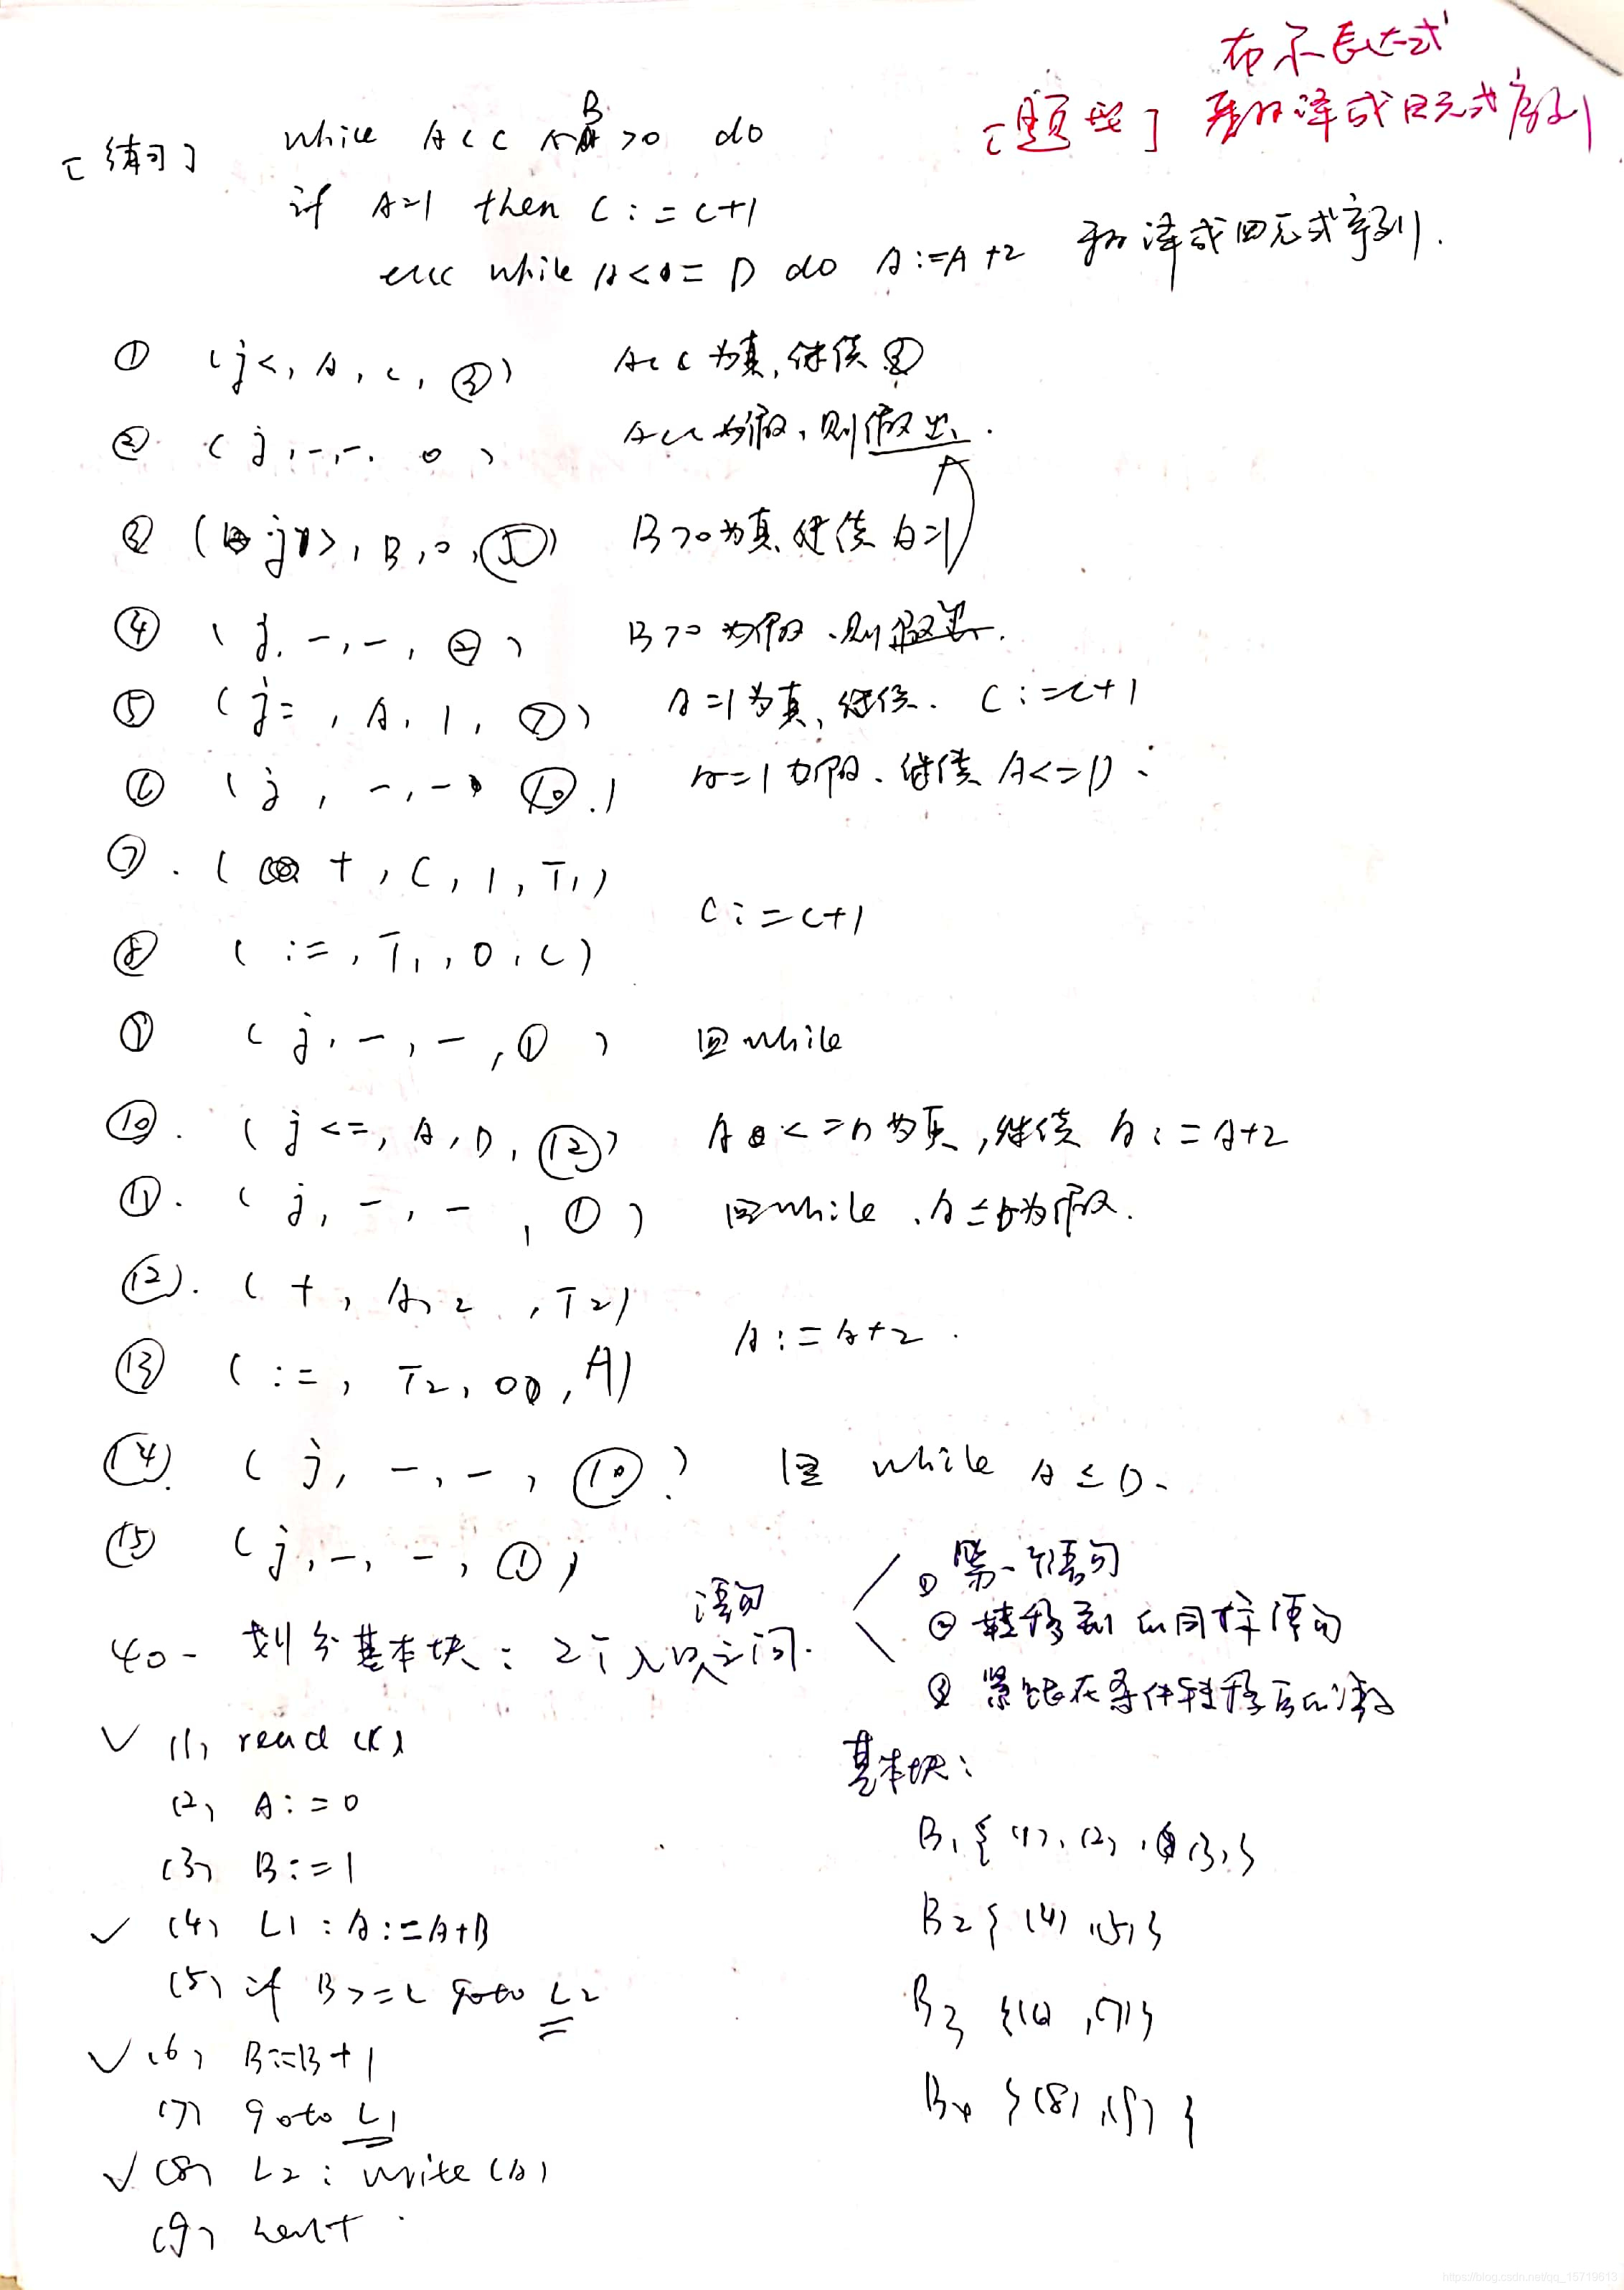 布尔表达式
[题型] 翻译成四元式序列
[练习] while A<C ∧ B>0 do
if A=1 then C:=C+1
else while A<= D do A:=A+2 翻译成四元式序列.
① (j<, A, C, ③) A<C为真,继续③
② (j,-,-, 0) A<C为假,则假出.
③ (j>, B, 0, ⑤) B>0为真,继续A=1
④ (j,-,-, ②) B>0为假,则假出.
⑤ (j=, A, 1, ⑦) A=1为真,继续. C:=C+1
⑥ (j, -,-, ⑩) A=1为假、继续 A<=D
⑦. (+, C, 1, T1)
C:=C+1
⑧ (:=, T1, 0, C)
⑨ (j,-,-,①) 回while
⑩. (j<=, A, D, ⑫) A<=D为真,继续 A:=A+2
⑪. (j,-,-,①) 回while、A≤D为假.
⑫. (+, A, 2, T2)
A:=A+2.
⑬ (:=, T2, 0, A)
⑭. (j,-,-,⑩) 回 while A≤D.
⑮ (j,-,-,①)
40- 划分基本块: 2个入口语句之间.
① 第一个语句
② 转移到的同样语句
③ 紧跟在条件转移后的语句
√ (1) read (C)
(2) A:=0
(3) B:=1
√ (4) L1:A:=A+B
(5) if B>=C goto L2
√ (6) B:=B+1
(7) goto L1
√ (8) L2: write(A)
(9) halt
基本块:
B1{(1),(2),(3)}
B2{(4),(5)}
B3{(6),(7)}
B4{(8),(9)}
https://blog.csdn.net/qq_15719613